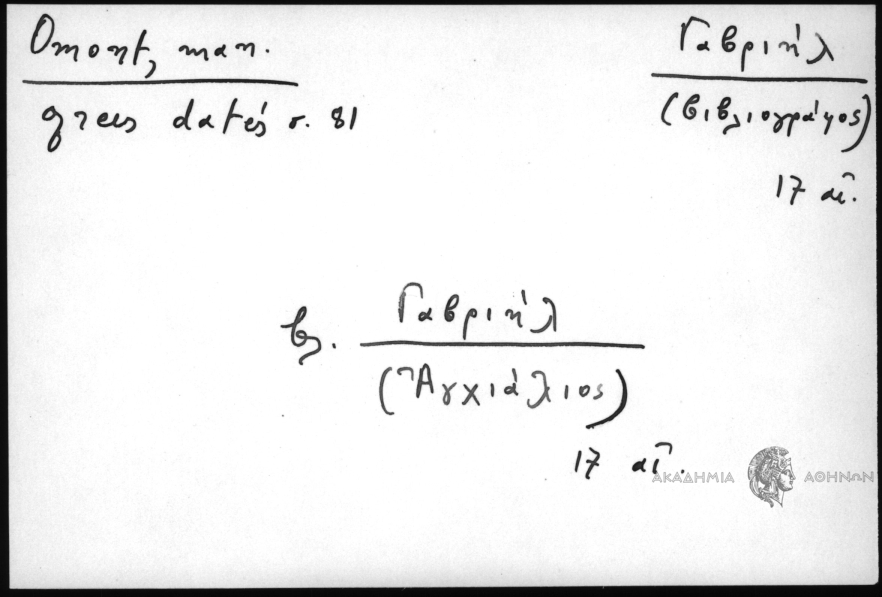 Omont, man.
grecs datés σ. 81
Γαβριήλ
(βιβλιογράφος)
17 αἰ.
βλ. Γαβριήλ
(Ἀγχιάλιος)
17 αἰ.
ΑΚΑΔΗΜΙΑ ΑΘΗΝΩΝ